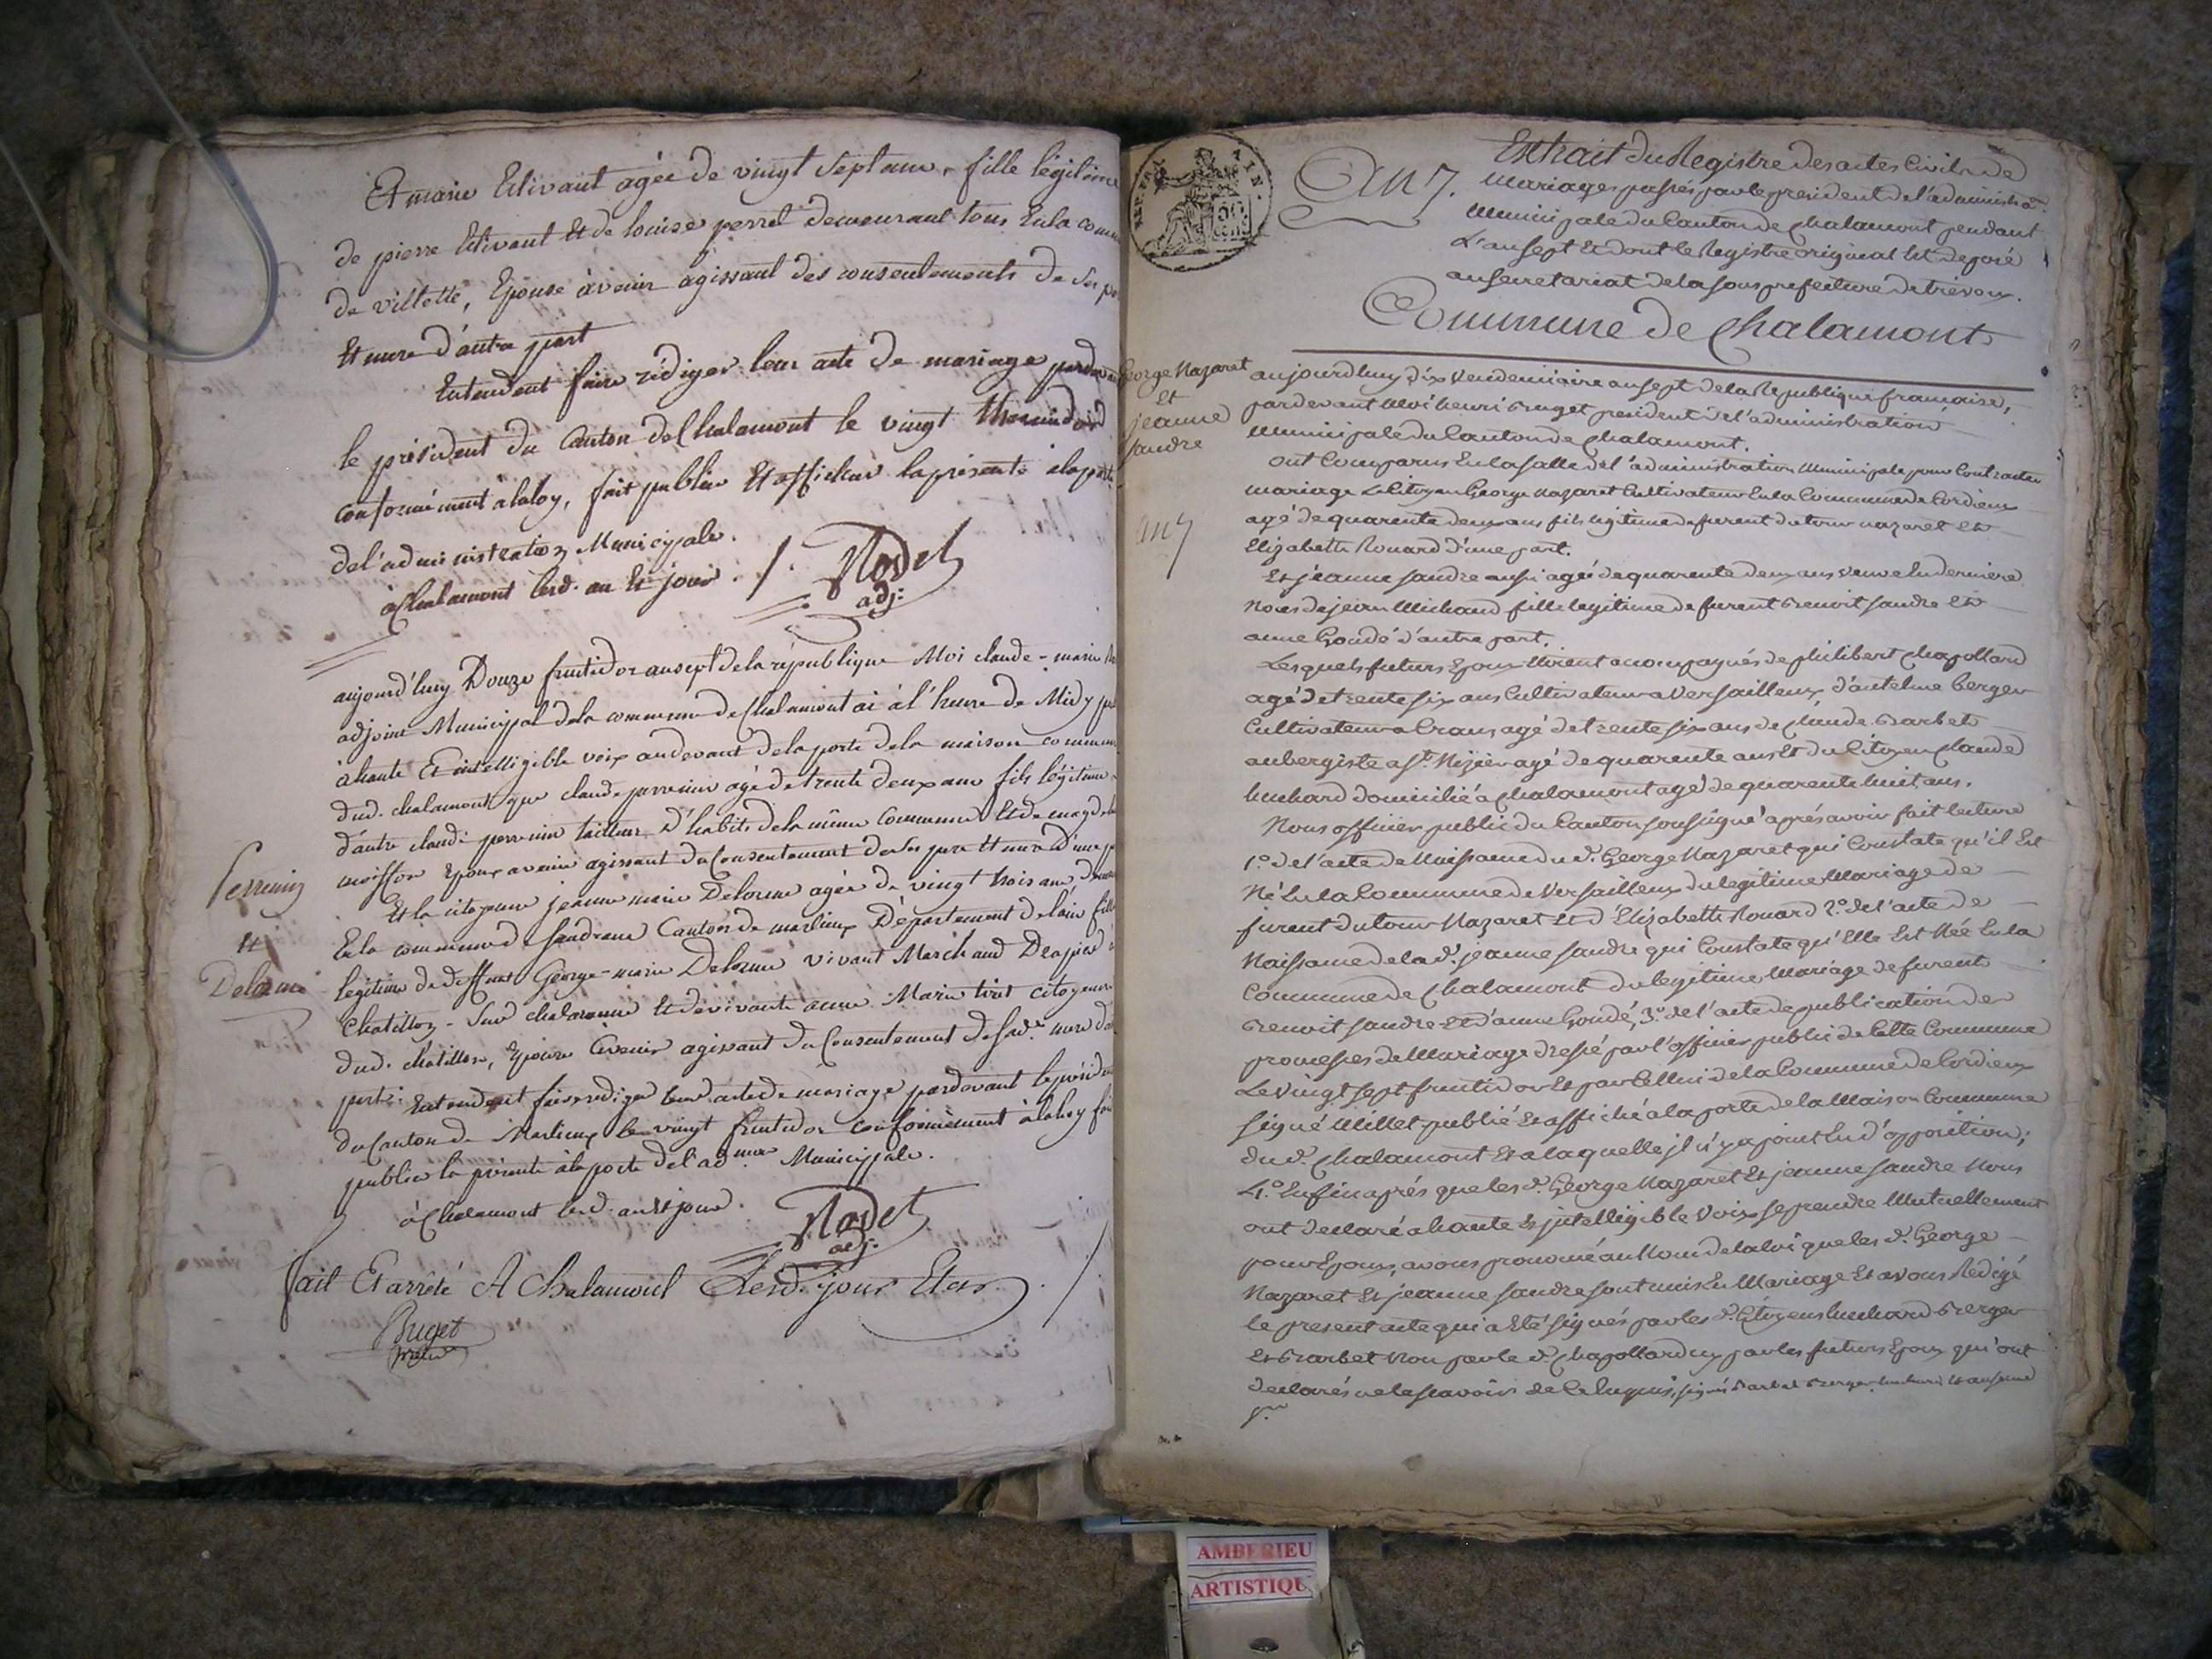 Et marie Estivant agée de vingt sept ans, fille légitime
de pierre Estivant Et de louise perret demeurant tous En la comm
de villette, Epouse àvenir agissant des consentements de ses pe
Et mere d'autre part
Entendent faire rédiger leur acte de mariage pardevan
le président du Canton de Chalamont le vingt thermidord
conformément à la loy, fait publier Et afficher la présente à la porte
de l'administration Municipale.
à Chalamont lesd. an Et jour. /. Nodet
adj:
aujourd'huy Douze fructidor an sept de la république Moi claude-marie
adjoint Municipal de la commune de Chalamont ai à l'heure de Midy
à haute Et intelligible voix au devant de la porte de la maison commune
dud. chalamont que claude perrenin agé de trente deux ans fils légitime
d'autre claude perrenin tailleur d'habits de la même commune Et de
moiffon Epoux avenir agissant du Consentement de Ses pere Et mere d'une p
Et la citoyenne jeanne marie Delorme agée de vingt trois ans
En la commune de Sandrans Canton de marlieux Département de lain fille
légitime de deffunt George-marie Delorme vivant Marchand Drapier à
Chatillon-Sur chalaronne Et de vivante anne Marie citoyenne
dud. chatillon, Epouse àvenir agissant du Consentement de Sad. mere d'a
part: Entendent faire rediger leur acte de mariage pardevant le préside
du Canton de Marlieux le vingt fructidor conformément à la loy fai
publier la présente à la porte de l'ad.on Municipale.
à Chalamont lesd. an Et jour. Nodet
adj:
Perrenin
Et
Delorme
fait Et arrêté A Chalamont Lesd. jour Et an. /
Buget
presid.
An 7.
Extrait du Registre des actes Civils de
Mariages passés par le president de l'administra.on
Municipale du Canton de Chalamont pendant
L'an sept Et dont le Registre original Est deposé
au secretariat de la sous prefecture de trevoux.
Commune de Chalamont
George Nazaret
Et
jeanne
Sandre
an 7
aujourd'huy dix Vendemiaire an sept de la Republique francaise,
pardevant Moi henri Buget president de l'administration
Municipale du Canton de Chalamont.
ont Comparus En la Salle de l'administration Municipale pour Contracter
mariage Le Citoyen George Nazaret Cultivateur En la Commune de Cordieux
agé de quarente deux ans fils legitime de furent dutour nazaret Et
Elizabeth Rouard d'une part.
Et jeanne Sandre aussi agée de quarente deux ans veuve En derniere
Noces de jean Michaud fille legitime de furent Benoit Sandre Et
anne Goudé d'autre part.
Lesquels futurs Epoux Etoient accompagnés de philibert Chapolard
agé de trente six ans Cultivateur a Versailleux, d'antelme Berger
Cultivateur a Crans agé de trente six ans de Claude Barbet
aubergiste a St. Nizier agé de quarente ans Et du Citoyen Claude
luchard domicilié a Chalamont agé de quarente huit ans.
Nous officier public du Canton soussigné après avoir fait lecture
1.° de l'acte de Naissance du d. George Nazaret qui Constate qu'il Est
Né En la Commune de Versailleux du legitime Mariage de
furent dutour Nazaret Et d'Elizabeth Rouard 2.° de l'acte de
Naissance de la d. jeanne Sandre qui Constate qu'Elle Est Née En la
Commune de Chalamont du legitime Mariage de furent
Benoit Sandre Et d'anne Goudé, 3.° de l'acte de publication de
promesses de Mariage dressé par l'officier public de Cette Commune
Le vingt sept fructidor Et par Cellui de la Commune de Cordieux
signé Millet publié Et affiché a la porte de la Maison Commune
du d. Chalamont Et a laquelle jl n'y a point Eu d'opposition;
4.° Enfin après que les d. George Nazaret Et jeanne Sandre Nous
ont declaré a haute Et jntelligible Voix se prendre Mutuellement
pour Epoux, avons prononcé au Nom de la loi que les d. George
Nazaret Et jeanne Sandre sont unis En Mariage Et avons Redigé
le present acte qui a Eté signés par les d. Citoyens luchard Berger
Et Barbet Non par le d. Chapolard ny par les futurs Epoux qui ont
declarés ne le scavoir de Ce Enquis, signés Barbet Berger luchard Et
AMBERIEU
ARTISTIQU